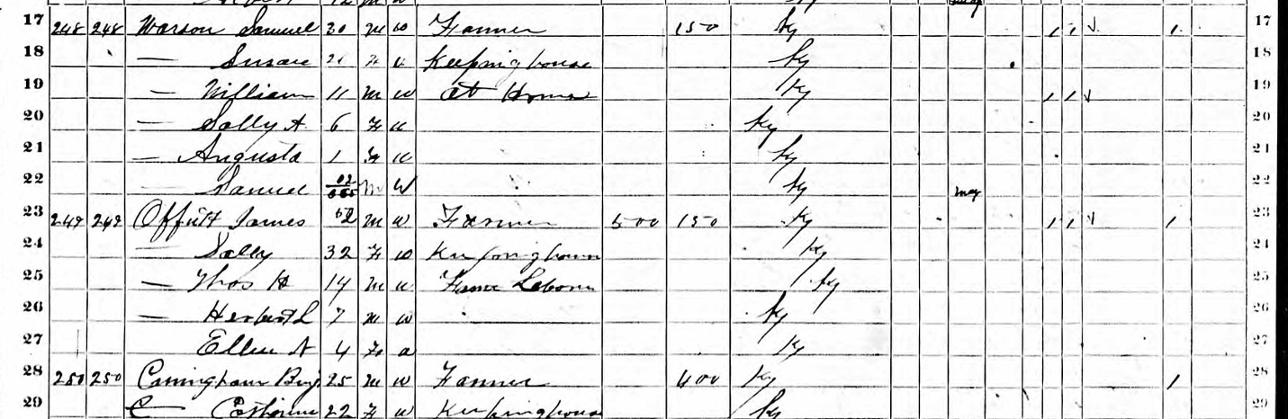 17 248 248 Warson Samuel 30 M W Farmer 150 Ky 1 1 1 17
18 — Susan 21 F W Keeping house Ky 18
19 — William 11 M W at Home Ky 1 1 19
20 — Sally A 6 F W Ky 20
21 — Augusta 1 F W Ky 21
22 Samuel M W Ky May 22
23 249 249 Offutt James 52 M W Farmer 500 150 Ky 1 1 1 23
24 — Sally 32 F W Keeping house Ky 24
25 — Thos H 14 M W Farm Ky 25
26 — Herbert L 7 M W Ky 26
27 Ellen A 4 F W Ky 27
28 250 250 25 M W Farmer 400 Ky 1 28
29 22 F W Keeping house Ky 29